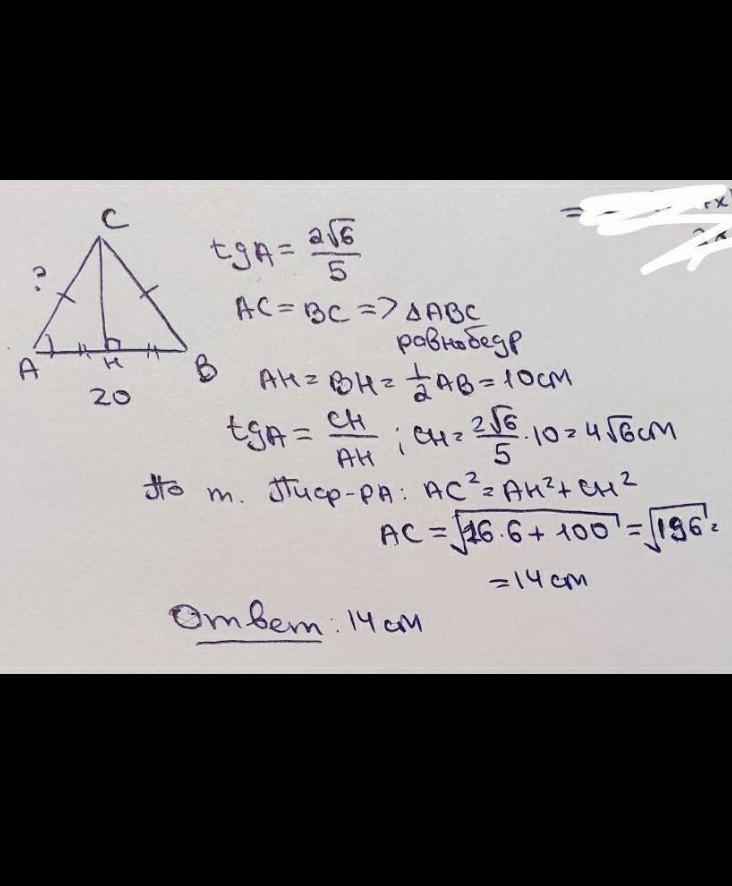 C
?
A
H
B
20
tgA = 2√6/5
AC = BC => △ABC
равнобедр
AH = BH = 1/2 AB = 10 см
tgA = CH/AH ; CH = 2√6/5 · 10 = 4√6 см
По т. Пиф-РА: AC² = AH² + CH²
AC = √16·6 + 100 = √196 =
= 14 см
Ответ: 14 см